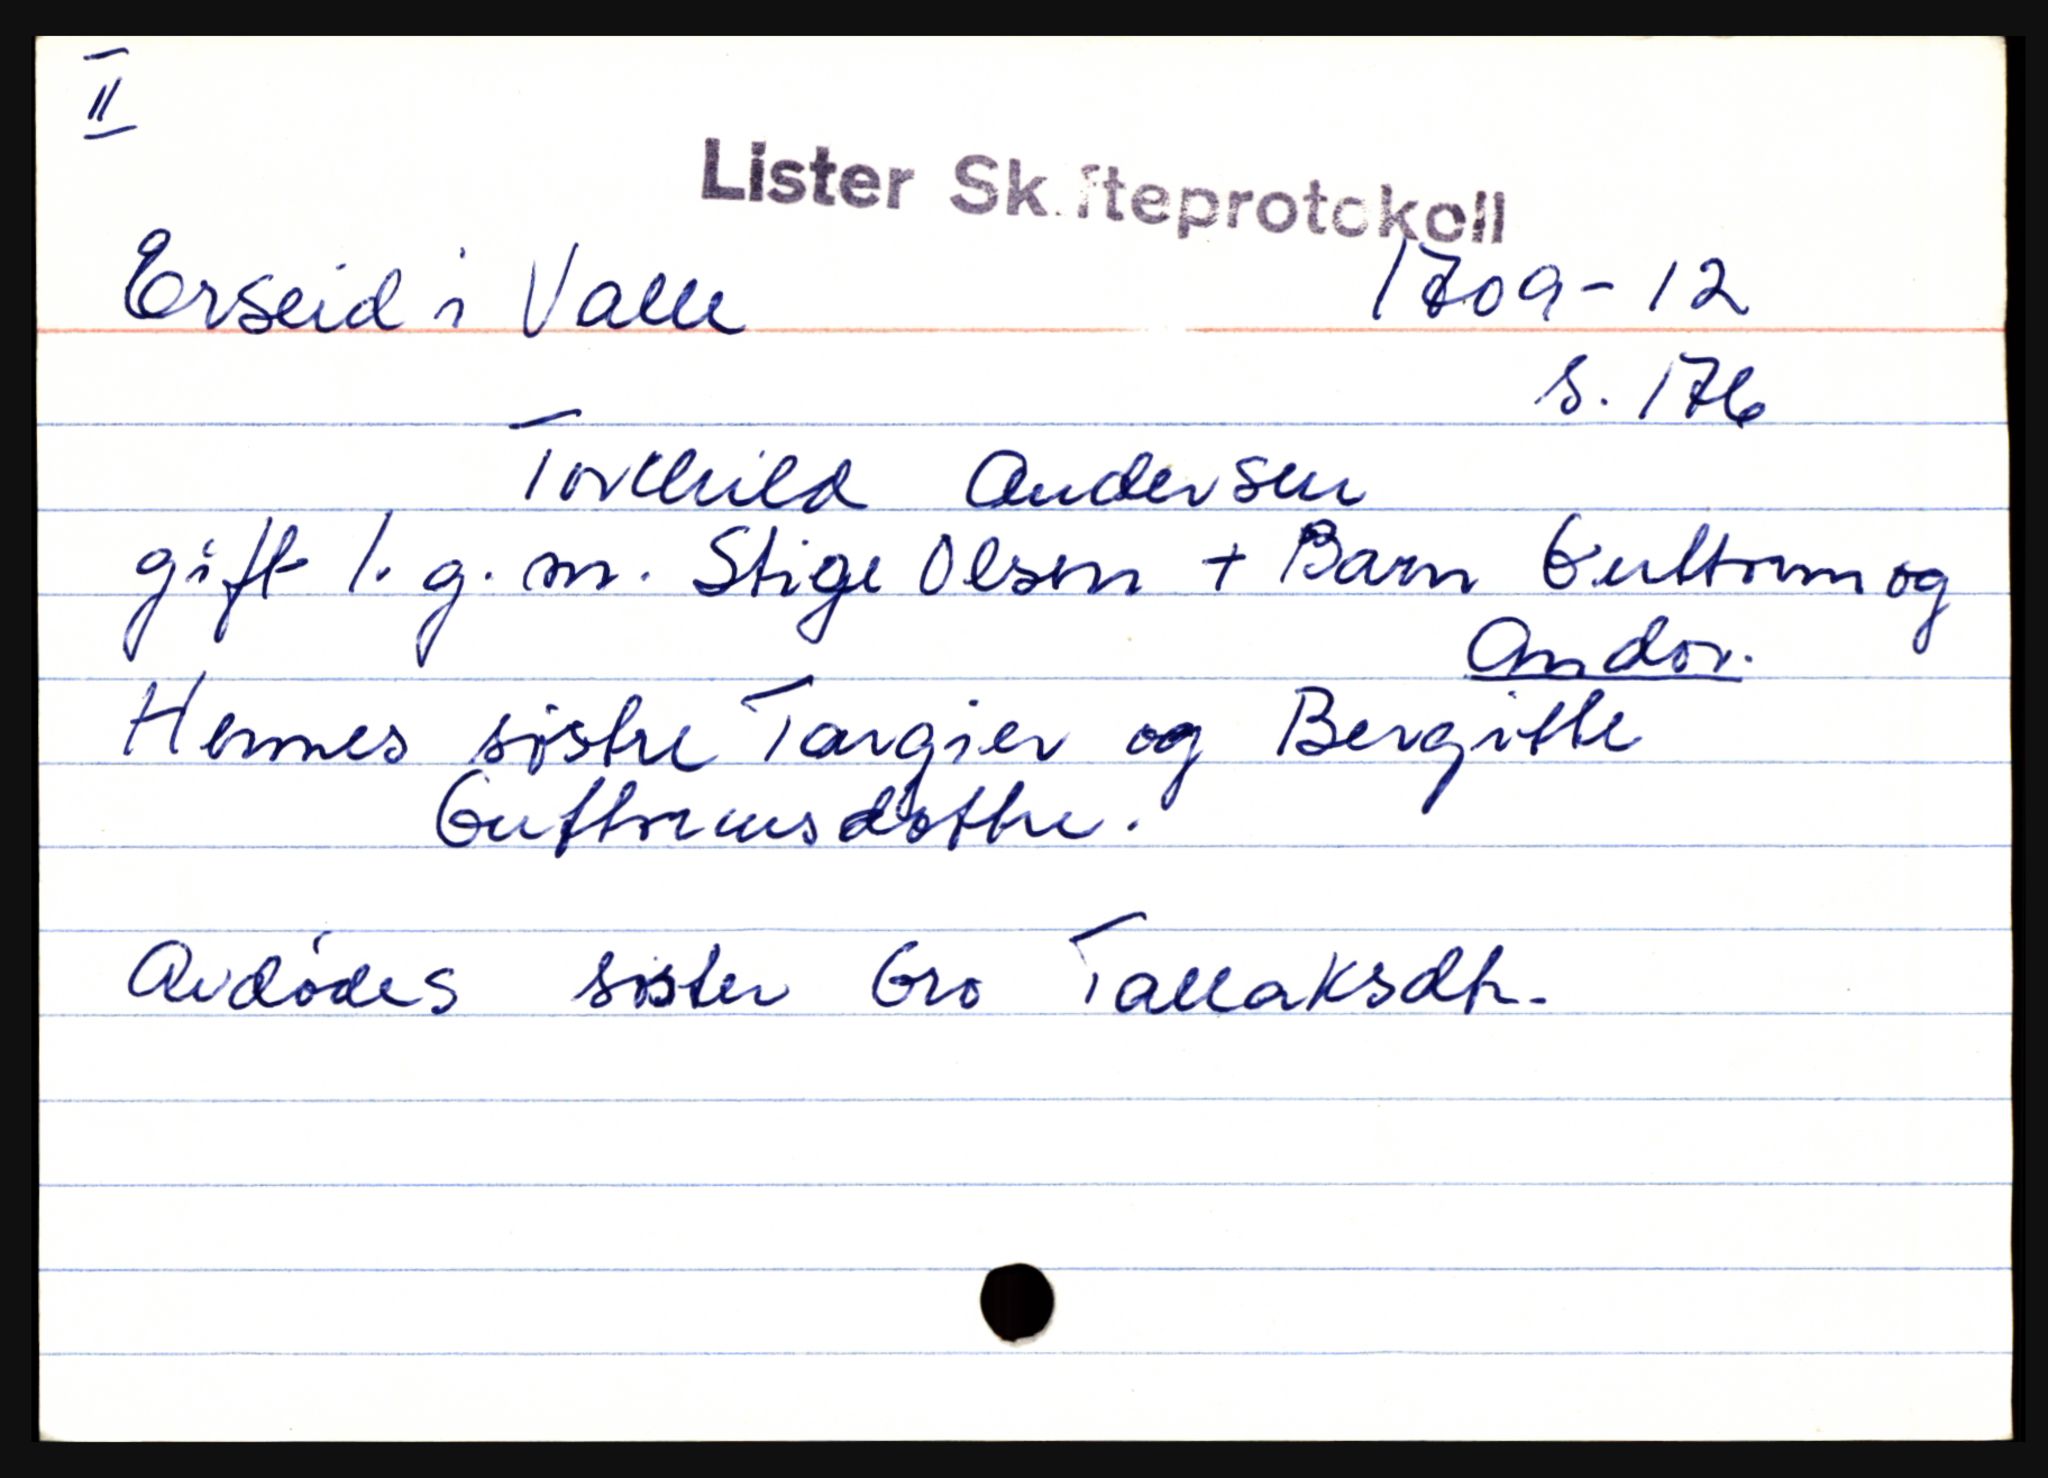 II
Lister Skifteprotokoll
Erseid i Valle 1709-12
s. 176
Torkhild Andersen
gift 1. g. m. Stige Olsen + Barn Guttorm og
Andor.
Hennes søstre Targier og Bergitte
Guttormsdøtre.
Avdødes søster Gro Tallaksdtr.